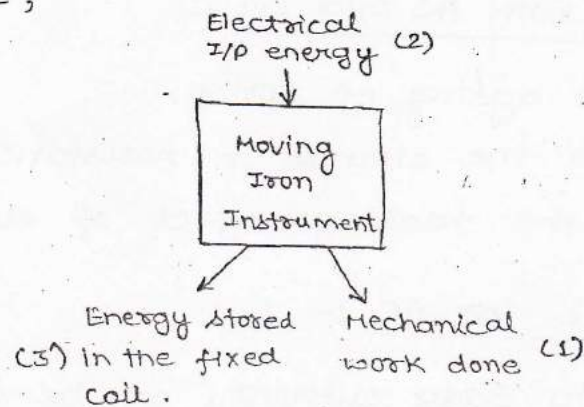 Electrical
I/P energy (2)
Moving
Iron
Instrument
Energy stored
(3) in the fixed
coil.
Mechanical
work done (1)